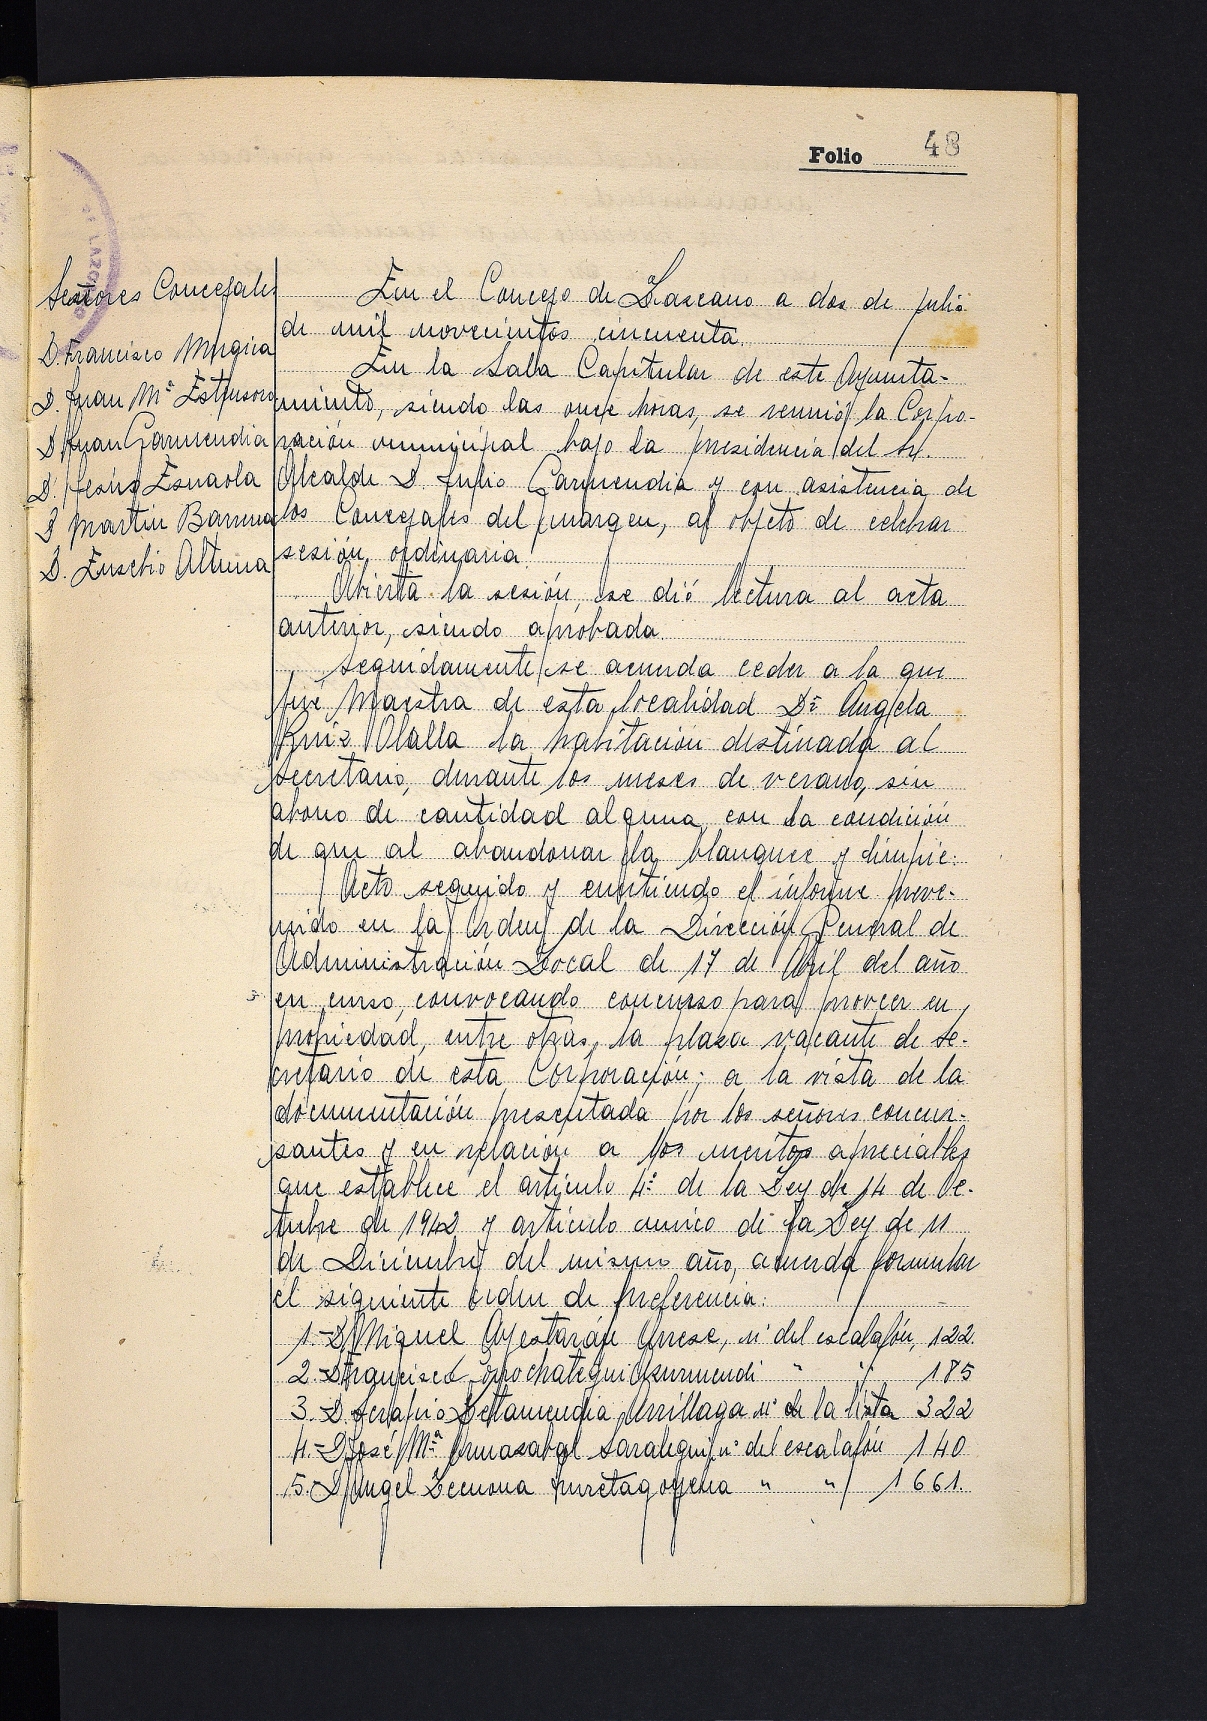 Folio 48
Señores Concejales
D. Francisco Mugica
D. Juan Mª Estensoro
D. Juan Garmendia
D. Jesús Esnaola
D. Martin Barrena
D. Eusebio Altuna
En el Concejo de Lazcano a dos de julio
de mil novecientos cincuenta.
En la Sala Capitular de este Ayunta-
miento, siendo las once horas, se reunió la Corpo-
ración municipal bajo la presidencia del Sr.
Alcalde D. Julio Garmendia y con asistencia de
los Concejales del margen, al objeto de celebrar
sesión ordinaria.
Abierta la sesión, se dió lectura al acta
anterior, siendo aprobada.
Seguidamente se acuerda ceder a la que
fué Maestra de esta localidad Dª Angela
Ruiz Olalla la habitación destinada al
Secretario, durante los meses de verano, sin
abono de cantidad alguna, con la condición
de que al abandonar la blanquee y limpie.
Acto seguido y emitiendo el informe preve-
nido en la Orden de la Dirección General de
Administración Local de 17 de Abril del año
en curso, convocando concurso para proveer en
propiedad, entre otras, la plaza vacante de Se-
cretario de esta Corporación; a la vista de la
documentación presentada por los señores concur-
santes y en relación a los meritos apreciables
que establece el artículo 4º de la Ley de 14 de Oc-
tubre de 1942 y artículo unico de la Ley de 11
de Diciembre del mismo año, acuerda formular
el siguiente orden de preferencia:
1.- D. Miguel Ayestarán Arrese, nº del escalafón, 122
2.- D. Francisco Goyo chategui Usurmendi " " 185
3.- D. Serapio Zetamendia Arrillaga nº de la lista 322
4.- D. José Mª Sarategui nº del escalafón 140
5.- D. Angel Lecuona Iurretagoyena " " 1661.